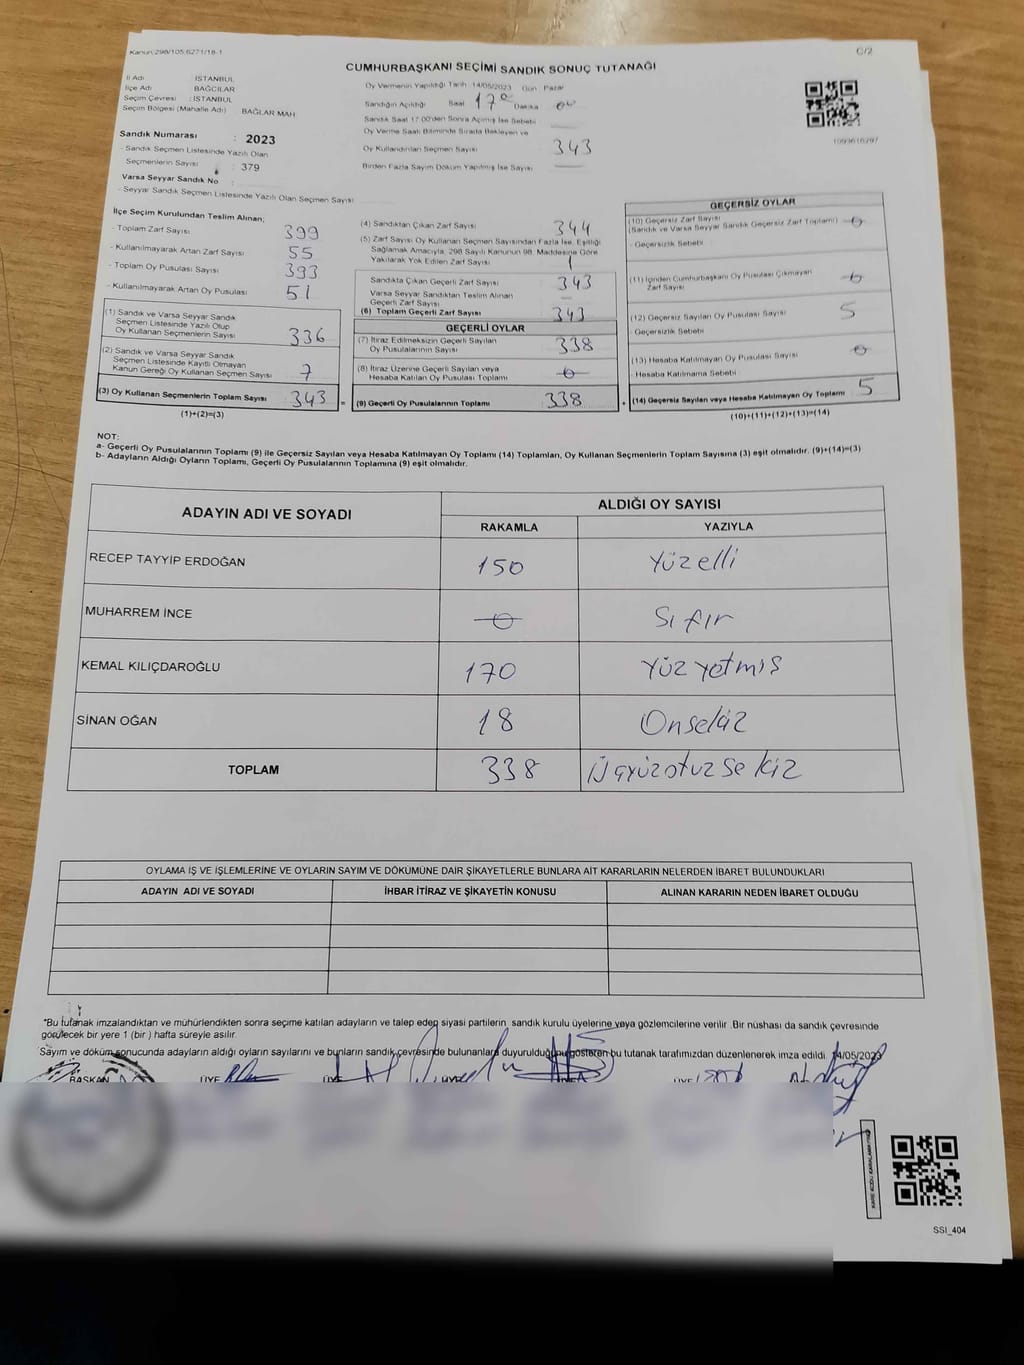 Kanun:298/105;6271/18-1
C/2
CUMHURBAŞKANI SEÇİMİ SANDIK SONUÇ TUTANAĞI
İl Adı : İSTANBUL
İlçe Adı : BAĞCILAR
Seçim Çevresi : İSTANBUL
Seçim Bölgesi (Mahalle Adı) BAĞLAR MAH.
Sandık Numarası : 2023
- Sandık Seçmen Listesinde Yazılı Olan
Seçmenlerin Sayısı : 379
Varsa Seyyar Sandık No :
- Seyyar Sandık Seçmen Listesinde Yazılı Olan Seçmen Sayısı
Oy Vermenin Yapıldığı Tarih 14/05/2023 Gün Pazar
Sandığın Açıldığı Saat 17 00 Dakika 00
Sandık Saat 17:00'den Sonra Açılmış İse Sebebi
Oy Verme Saati Bitiminde Sırada Bekleyen ve
Oy Kullandırılan Seçmen Sayısı 343
Birden Fazla Sayım Döküm Yapılmış İse Sayısı
İlçe Seçim Kurulundan Teslim Alınan;
- Toplam Zarf Sayısı 399
- Kullanılmayarak Artan Zarf Sayısı 55
- Toplam Oy Pusulası Sayısı 393
- Kullanılmayarak Artan Oy Pusulası 51
(1) Sandık ve Varsa Seyyar Sandık
Seçmen Listesinde Yazılı Olup
Oy Kullanan Seçmenlerin Sayısı 336
(2) Sandık ve Varsa Seyyar Sandık
Seçmen Listesinde Kayıtlı Olmayan
Kanun Gereği Oy Kullanan Seçmen Sayısı 7
(3) Oy Kullanan Seçmenlerin Toplam Sayısı 343
(1)+(2)=(3)
(4) Sandıktan Çıkan Zarf Sayısı 344
(5) Zarf Sayısı Oy Kullanan Seçmen Sayısından Fazla İse, Eşitliği
Sağlamak Amacıyla, 298 Sayılı Kanunun 98. Maddesine Göre
Yakılarak Yok Edilen Zarf Sayısı 1
Sandıkta Çıkan Geçerli Zarf Sayısı 343
Varsa Seyyar Sandıktan Teslim Alınan
Geçerli Zarf Sayısı
(6) Toplam Geçerli Zarf Sayısı 343
GEÇERLİ OYLAR
(7) İtiraz Edilmeksizin Geçerli Sayılan
Oy Pusulalarının Sayısı 338
(8) İtiraz Üzerine Geçerli Sayılan veya
Hesaba Katılan Oy Pusulası Toplamı 0
=
(9) Geçerli Oy Pusulalarının Toplamı 338
+
GEÇERSİZ OYLAR
(10) Geçersiz Zarf Sayısı 0
(Sandık ve Varsa Seyyar Sandık Geçersiz Zarf Toplamı)
- Geçersizlik Sebebi
(11) İçinden Cumhurbaşkanı Oy Pusulası Çıkmayan
Zarf Sayısı 0
(12) Geçersiz Sayılan Oy Pusulası Sayısı 5
- Geçersizlik Sebebi
(13) Hesaba Katılmayan Oy Pusulası Sayısı 0
- Hesaba Katılmama Sebebi
(14) Geçersiz Sayılan veya Hesaba Katılmayan Oy Toplamı 5
(10)+(11)+(12)+(13)=(14)
NOT:
a- Geçerli Oy Pusulalarının Toplamı (9) ile Geçersiz Sayılan veya Hesaba Katılmayan Oy Toplamı (14) Toplamları, Oy Kullanan Seçmenlerin Toplam Sayısına (3) eşit olmalıdır. (9)+(14)=(3)
b- Adayların Aldığı Oyların Toplamı, Geçerli Oy Pusulalarının Toplamına (9) eşit olmalıdır.
ADAYIN ADI VE SOYADI
ALDIĞI OY SAYISI
RAKAMLA YAZIYLA
RECEP TAYYİP ERDOĞAN 150 Yüzelli
MUHARREM İNCE 0 Sıfır
KEMAL KILIÇDAROĞLU 170 Yüz yetmiş
SİNAN OĞAN 18 Onsekiz
TOPLAM 338 Üçyüzotuzsekiz
OYLAMA İŞ VE İŞLEMLERİNE VE OYLARIN SAYIM VE DÖKÜMÜNE DAİR ŞİKAYETLERLE BUNLARA AİT KARARLARIN NELERDEN İBARET BULUNDUKLARI
ADAYIN ADI VE SOYADI İHBAR İTİRAZ VE ŞİKAYETİN KONUSU ALINAN KARARIN NEDEN İBARET OLDUĞU
*Bu tutanak imzalandıktan ve mühürlendikten sonra seçime katılan adayların ve talep eden siyasi partilerin, sandık kurulu üyelerine veya gözlemcilerine verilir. Bir nüshası da sandık çevresinde
görülecek bir yere 1 (bir) hafta süreyle asılır.
Sayım ve döküm sonucunda adayların aldığı oyların sayılarını ve bunların sandık çevresinde bulunanlara duyurulduğunu gösteren bu tutanak tarafımızdan düzenlenerek imza edildi. 14/05/2023
BAŞKAN ÜYE ÜYE ÜYE ÜYE ÜYE
SSİ_404